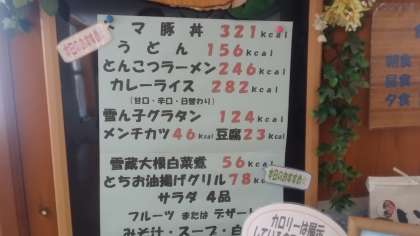 マ豚丼 321kcal
うどん 156kcal
とんこつラーメン 246kcal
カレーライス 282kcal
(甘口・辛口・日替わり)
雪ん子グラタン 124kcal
メンチカツ 46kcal 豆腐 23kcal
雪蔵大根白菜煮 56kcal
とちお油揚げグリル 78kcal
サラダ 4品
フルーツ または デザー
みそ汁・スープ・白
本日のおすすめ!
本日のおすすめ!
カロリーは展示
している
朝食
昼食
夕食